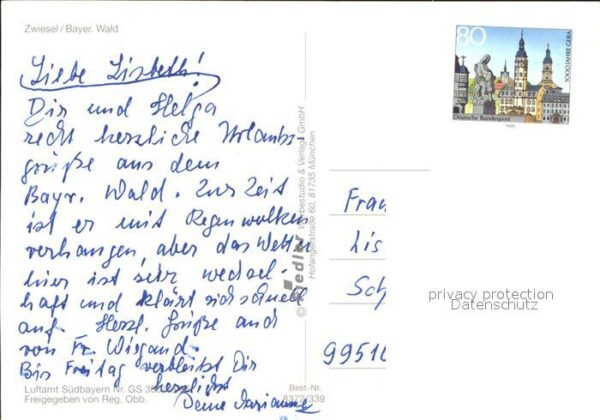 Zwiesel / Bayer. Wald
Liebe Lisbeth!
Dir und Helga
recht herzliche Urlaubs-
grüße aus dem
Bayr. Wald. Zur Zeit
ist er mit Regenwolken
verhangen, aber das Wetter
hier ist sehr wechsel-
haft und klärt sich schnell
auf. Herzl. Grüße auch
von Fr. Wiegand.
Bis Freitag verbleibt Dir
herzlichst
Deine Marianne
Luftamt Südbayern Nr. GS
Freigegeben von Reg. Obb.
Best.-Nr.
8372/339
Werbestudio & Verlags GmbH
Hofangerstraße 60, 81735 München
80
1000 JAHRE GERA
Deutsche Bundespost
1995
Frau
Lis
Sch
99510
privacy protection
Datenschutz